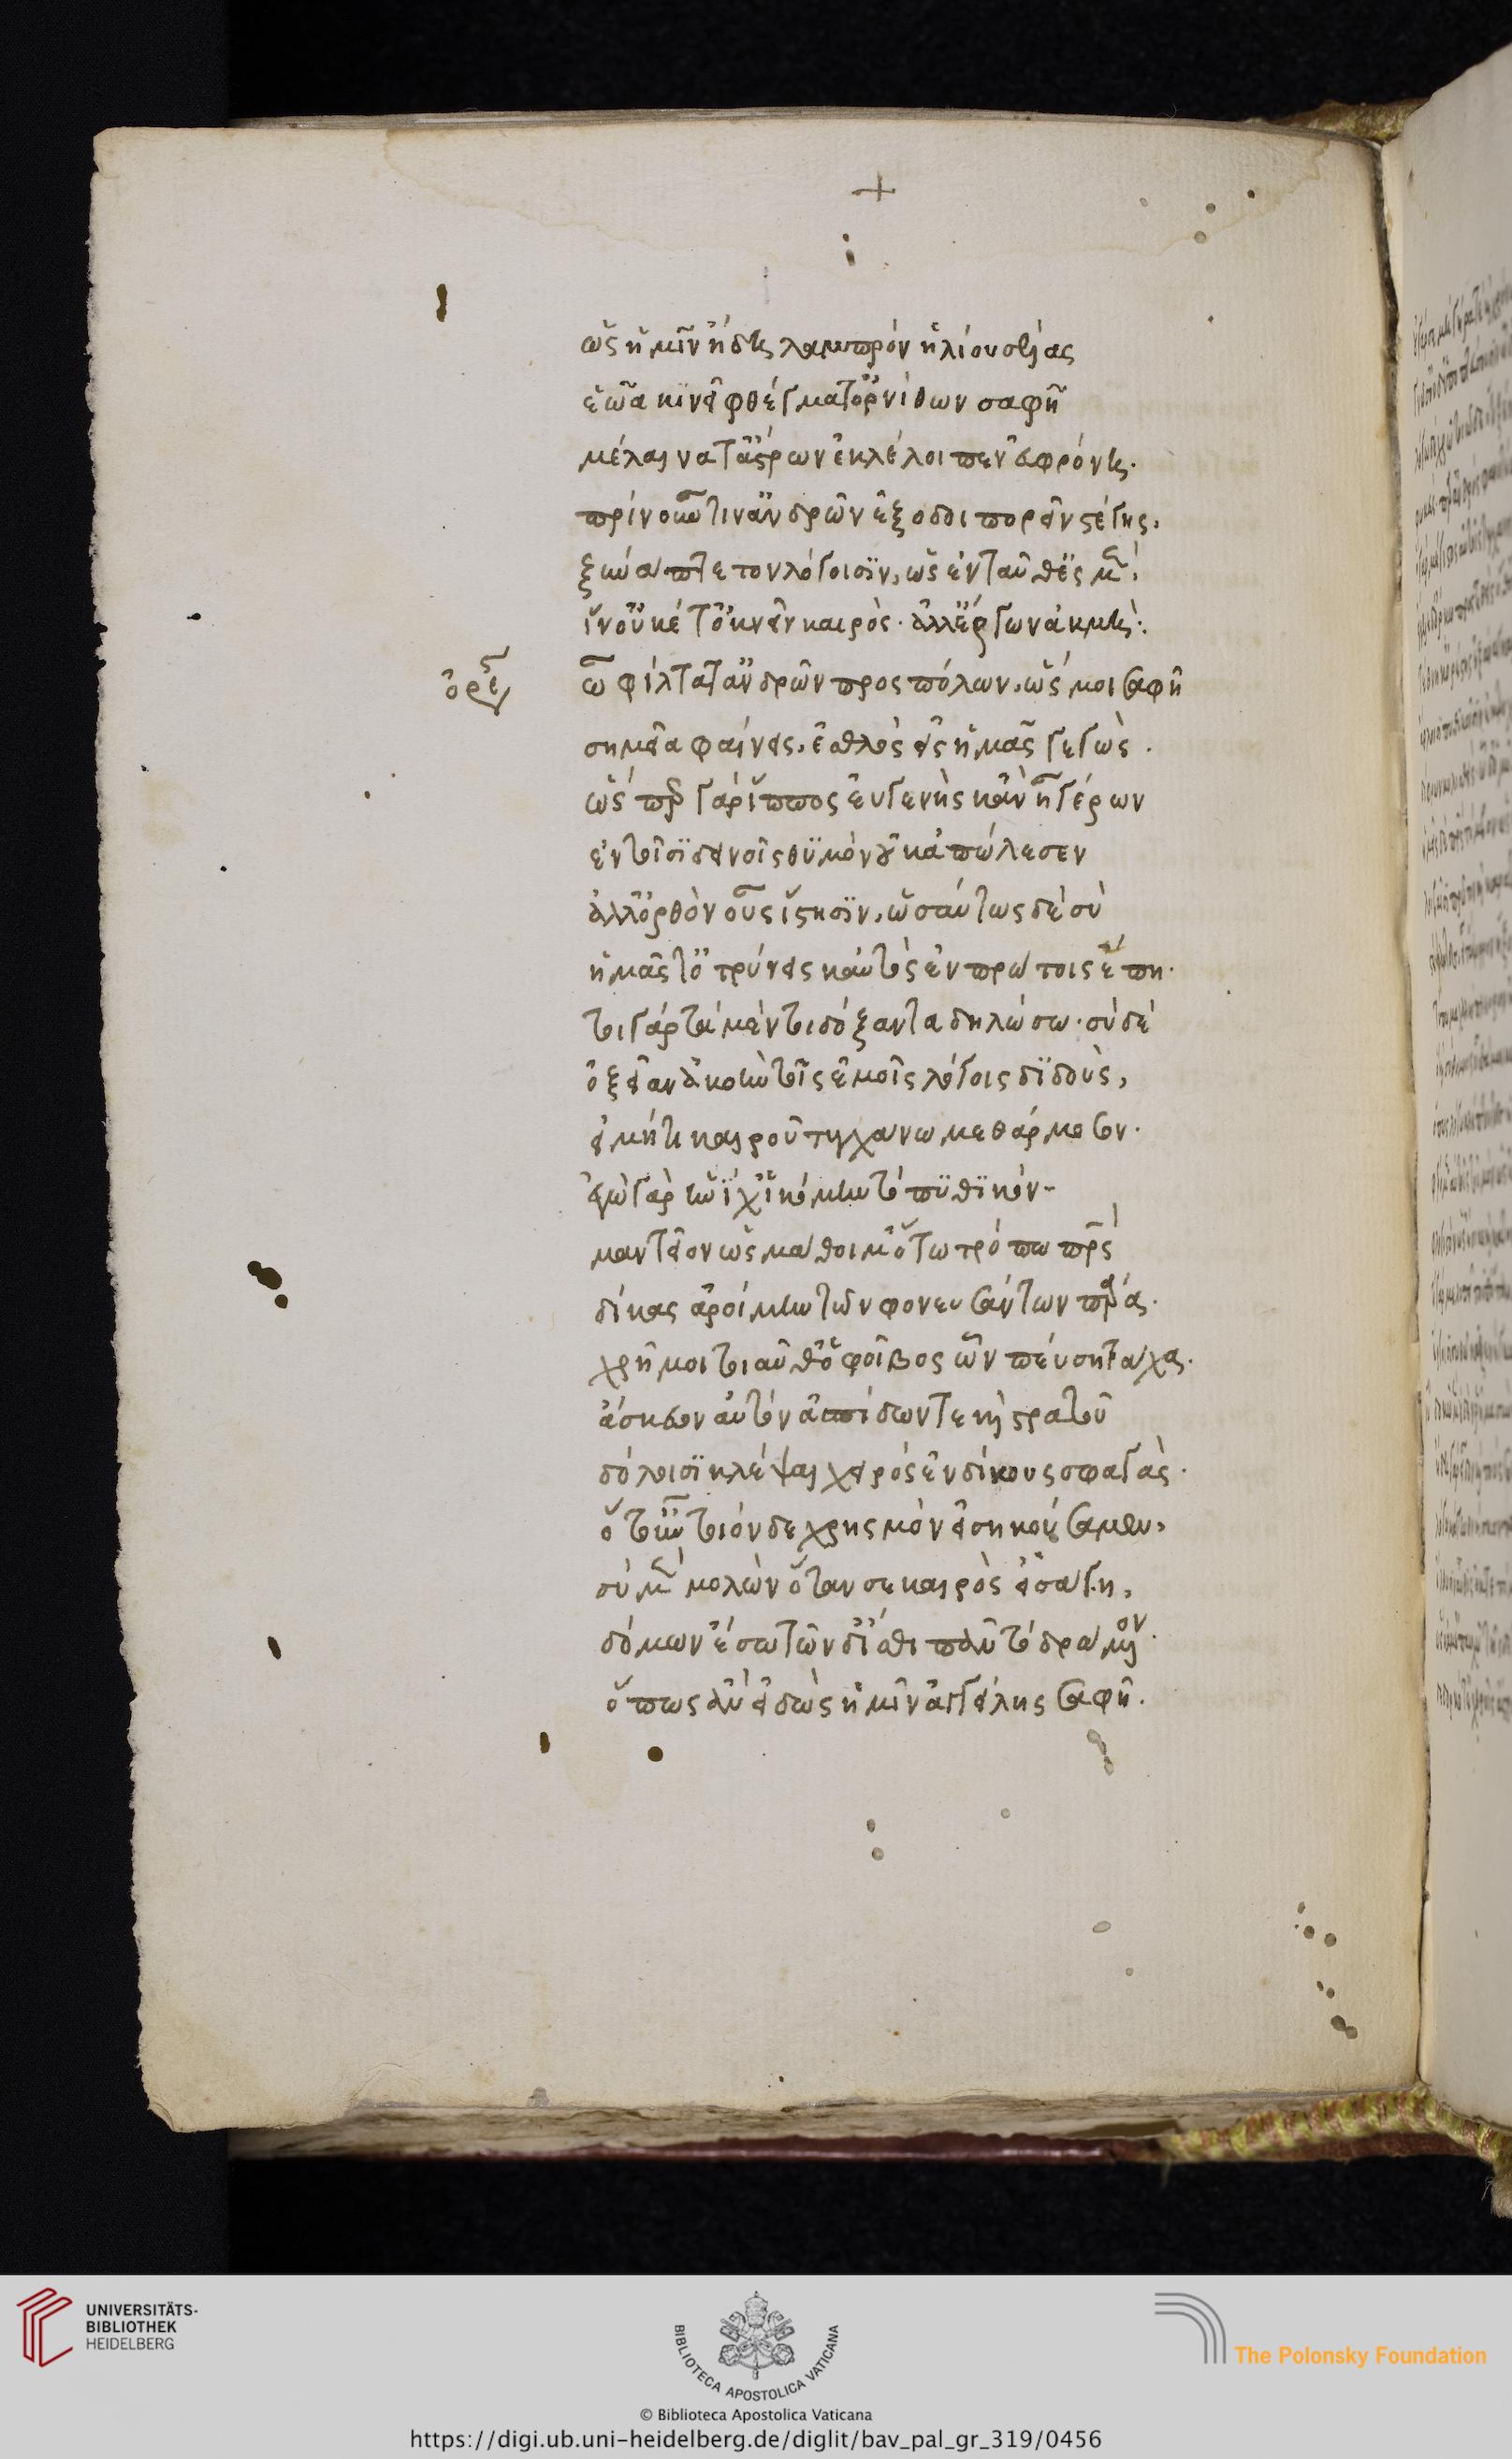 +
ὡς ἡμῖν ἤδη λαμπρὸν ἡλίου σέλας
ἑῶα κινεῖ φθέγματ' ὀρνίθων σαφῆ
μέλαινα τ' ἄστρων ἐκλέλοιπεν εὐφρόνη·
πρὶν οὖν τιν' ἀνδρῶν ἐξοδοιπορεῖν στέγης,
ξυνάπτετον λόγοισιν, ὡς ἐνταῦθ' ἐσμὲν,
ἵν' οὐκέτ' ὀκνεῖν καιρὸς· ἀλλ' ἔργων ἀκμή:
ὀρέστης ὦ φίλτατ' ἀνδρῶν προσπόλων, ὥς μοι σαφῆ
σημεῖα φαίνεις, ἐσθλὸς εἰς ἡμᾶς γεγὼς.
ὥσπερ γὰρ ἵππος εὐγενὴς κἂν ᾖ γέρων
ἐν τοῖσι δεινοῖς θυμὸν οὐκ ἀπώλεσεν
ἀλλ' ὀρθὸν οὖς ἵστησιν, ὡσαύτως δὲ σὺ
ἡμᾶς τ' ὀτρύνεις καὐτὸς ἐν πρώτοις ἕπη·
τοιγὰρ τὰ μὲν τοι δόξαντα δηλώσω· σὺ δὲ
ὀξεῖαν ἀκοὴν τοῖς ἐμοῖς λόγοις διδοὺς,
εἰ μή τι καιροῦ τυγχάνω μεθάρμοσον·
ἐγὼ γὰρ ἡνίχ' ἱκόμην τὸ πυθικὸν
μαντεῖον ὡς μάθοιμ' ὅτω τρόπω πατρὸς
δίκας ἀροίμην τῶν φονευσάντων πάρα·
χρῆ μοι τοιαῦθ' ὁ φοῖβος ὧν πεύση τάχα·
ἄσκευον αὐτὸν ἀσπίδων τε καὶ στρατοῦ
δόλοισι κλέψαι χειρὸς ἐνδίκους σφαγὰς·
ὅτ' οὖν τοιόνδε χρησμὸν εἰσηκούσαμεν,
σὺ μὲν μολὼν ὅταν σε καιρὸς εἰσάγη,
δόμων ἔσω τῶνδ' ἴσθι πᾶν τὸ δρώμενον·
ὅπως ἂν εἰδὼς ἡμῖν ἀγγείλης σαφῆ.
UNIVERSITÄTS-
BIBLIOTHEK
HEIDELBERG
BIBLIOTECA APOSTOLICA VATICANA
The Polonsky Foundation
© Biblioteca Apostolica Vaticana
https://digi.ub.uni-heidelberg.de/diglit/bav_pal_gr_319/0456